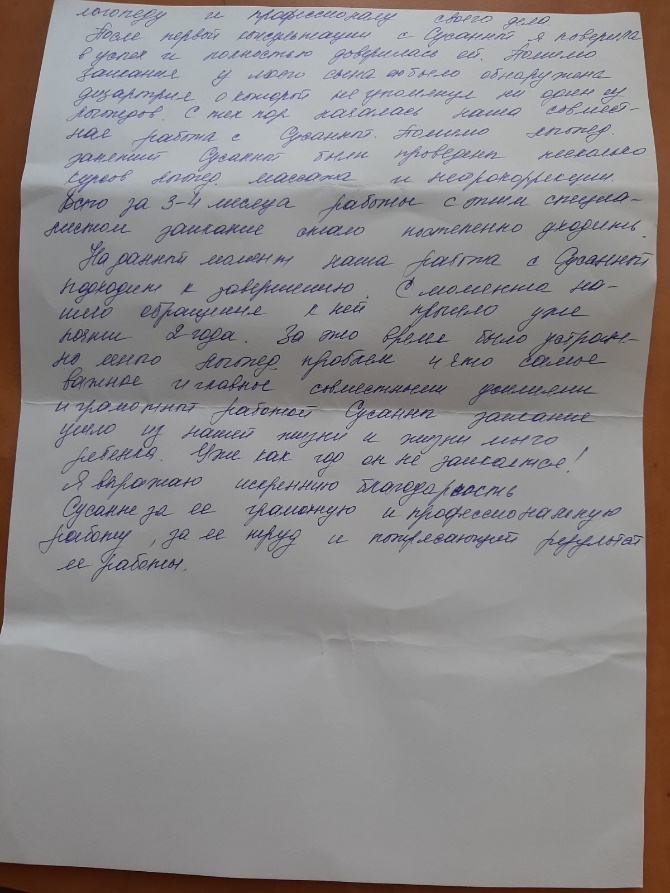 логопеду и профессионалу своего дела
После первой консультации с Сусанной я поверила
в успех и полностью доверилась ей. Помимо
заикания у моего сына было обнаружена
дизартрия о которой не упомянул ни один из
логопедов. С тех пор началась наша совмест-
ная работа с Сусанной. Помимо логопед.
занятий Сусанной были проведены несколько
курсов логопед. массажа и нейрокоррекции.
Всго за 3-4 месяца работы с этим специа-
листом заикание стало постепенно уходить.
На данный момент наша работа с Сусанной
подходит к завершению. С момента на-
шего обращения к ней прошло уже
почти 2 года. За это время было устране-
но много логопед. проблем и что самое
важное и главное совместными усилиями
и грамотной работой Сусанны заикание
ушло из нашей жизни и жизни моего
ребенка. Уже как год он не заикается!
Я выражаю искреннюю благодарность
Сусанне за ее грамотную и профессиональную
работу, за ее труд и потрясающий результат
ее работы.